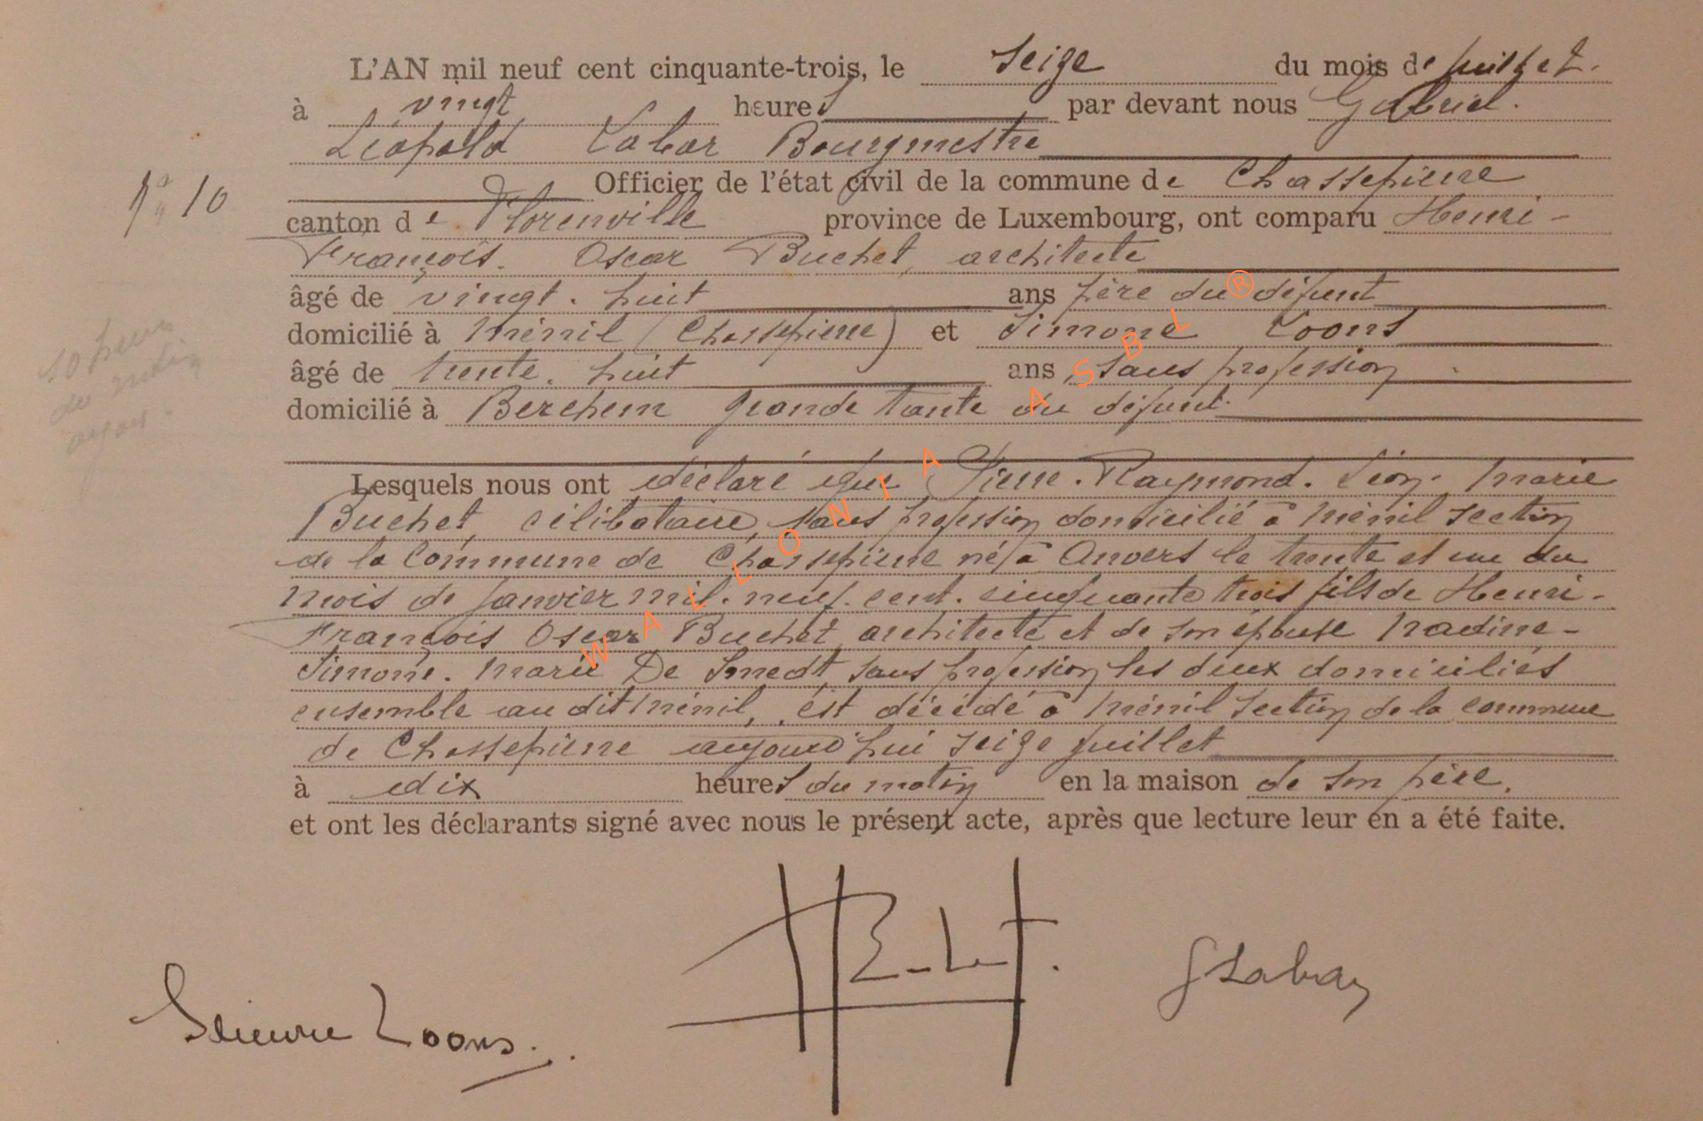 L'AN mil neuf cent cinquante-trois, le seize du mois de juillet.
à vingt heures par devant nous Gabriel.
Léopold Labar Bourgmestre
Officier de l'état civil de la commune de Chassepierre
N° 10
canton de Florenville province de Luxembourg, ont comparu Henri-
François. Oscar Buchet, architecte
âgé de vingt. huit ans père du défunt
domicilié à Ménil (Chassepierre) et Simone Loons
âgé de trente. huit ans, sans profession
domicilié à Berchem grande tante du défunt.
10 heures
du matin
Lesquels nous ont déclaré que Pierre. Raymond. Léon. Marie
Buchet, célibataire, sans profession domicilié à Ménil section
de la Commune de Chassepierre né à Anvers le trente et un du
mois de Janvier mil. neuf. cent. cinquante trois fils de Henri-
François Oscar Buchet architecte et de son épouse Nadine-
Simone. Marie De Smedt, sans profession les deux domiciliés
ensemble au dit Ménil, est décédé à Ménil section de la commune
de Chassepierre aujourd'hui seize Juillet
à dix heures du matin en la maison de son père.
et ont les déclarants signé avec nous le présent acte, après que lecture leur en a été faite.
H Buchet.
G Labar
Loons.
WALLONIA ASBL ®